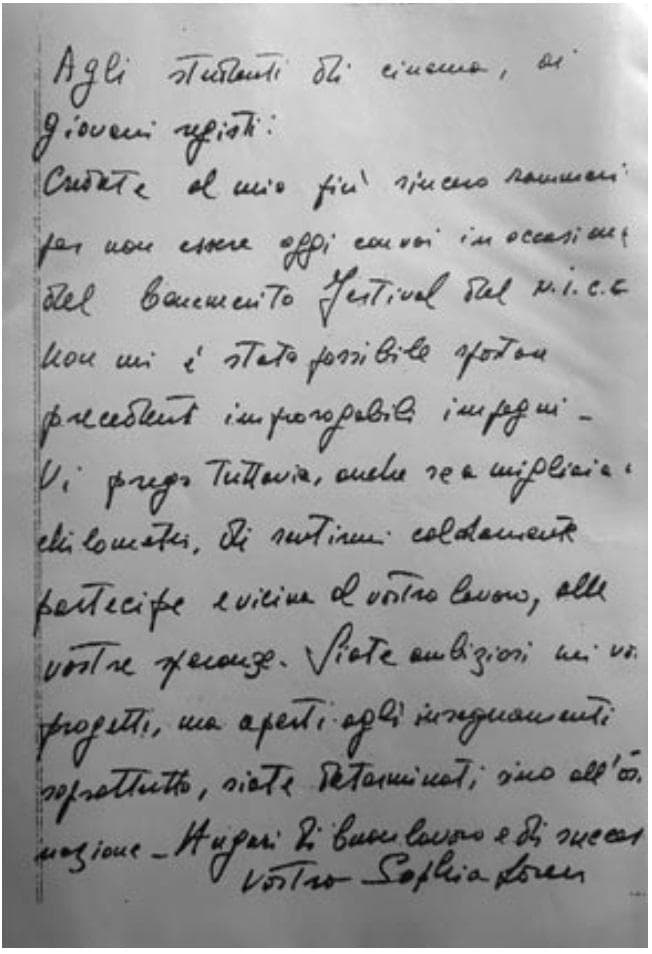 Agli studenti di cinema, ai
giovani registi:
Credate al mio più sincero rammari
per non essere oggi con voi in occasione
del benemerito Festival del N.I.C.E
Non mi è stato possibile spostare
precedenti improrogabili impegni -
Vi prego tuttavia, anche se a migliaia
chilometri, di sentirmi caldamente
partecipe e vicina al vostro lavoro, alle
vostre speranze. Siate ambiziosi nei vo
progetti, ma aperti agli insegnamenti
soprattutto, siate determinati, sino all'os
nazione - Auguri di buon lavoro e di succes
Vostra Sophia Loren